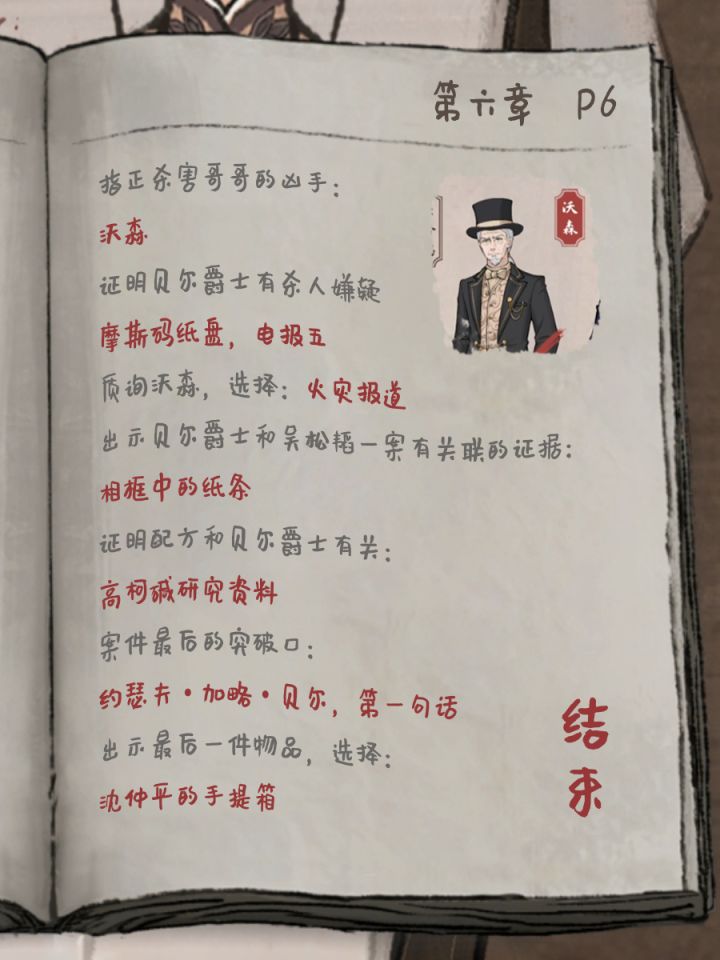 第六章 P6
指正杀害哥哥的凶手：
沃森
沃森
证明贝尔爵士有杀人嫌疑
摩斯码纸盘，电报五
质询沃森，选择：火灾报道
出示贝尔爵士和吴松韬一案有关联的证据：
相框中的纸条
证明配方和贝尔爵士有关：
高柯碱研究资料
案件最后的突破口：
约瑟夫·加略·贝尔，第一句话
出示最后一件物品，选择：
沈仲平的手提箱
结束